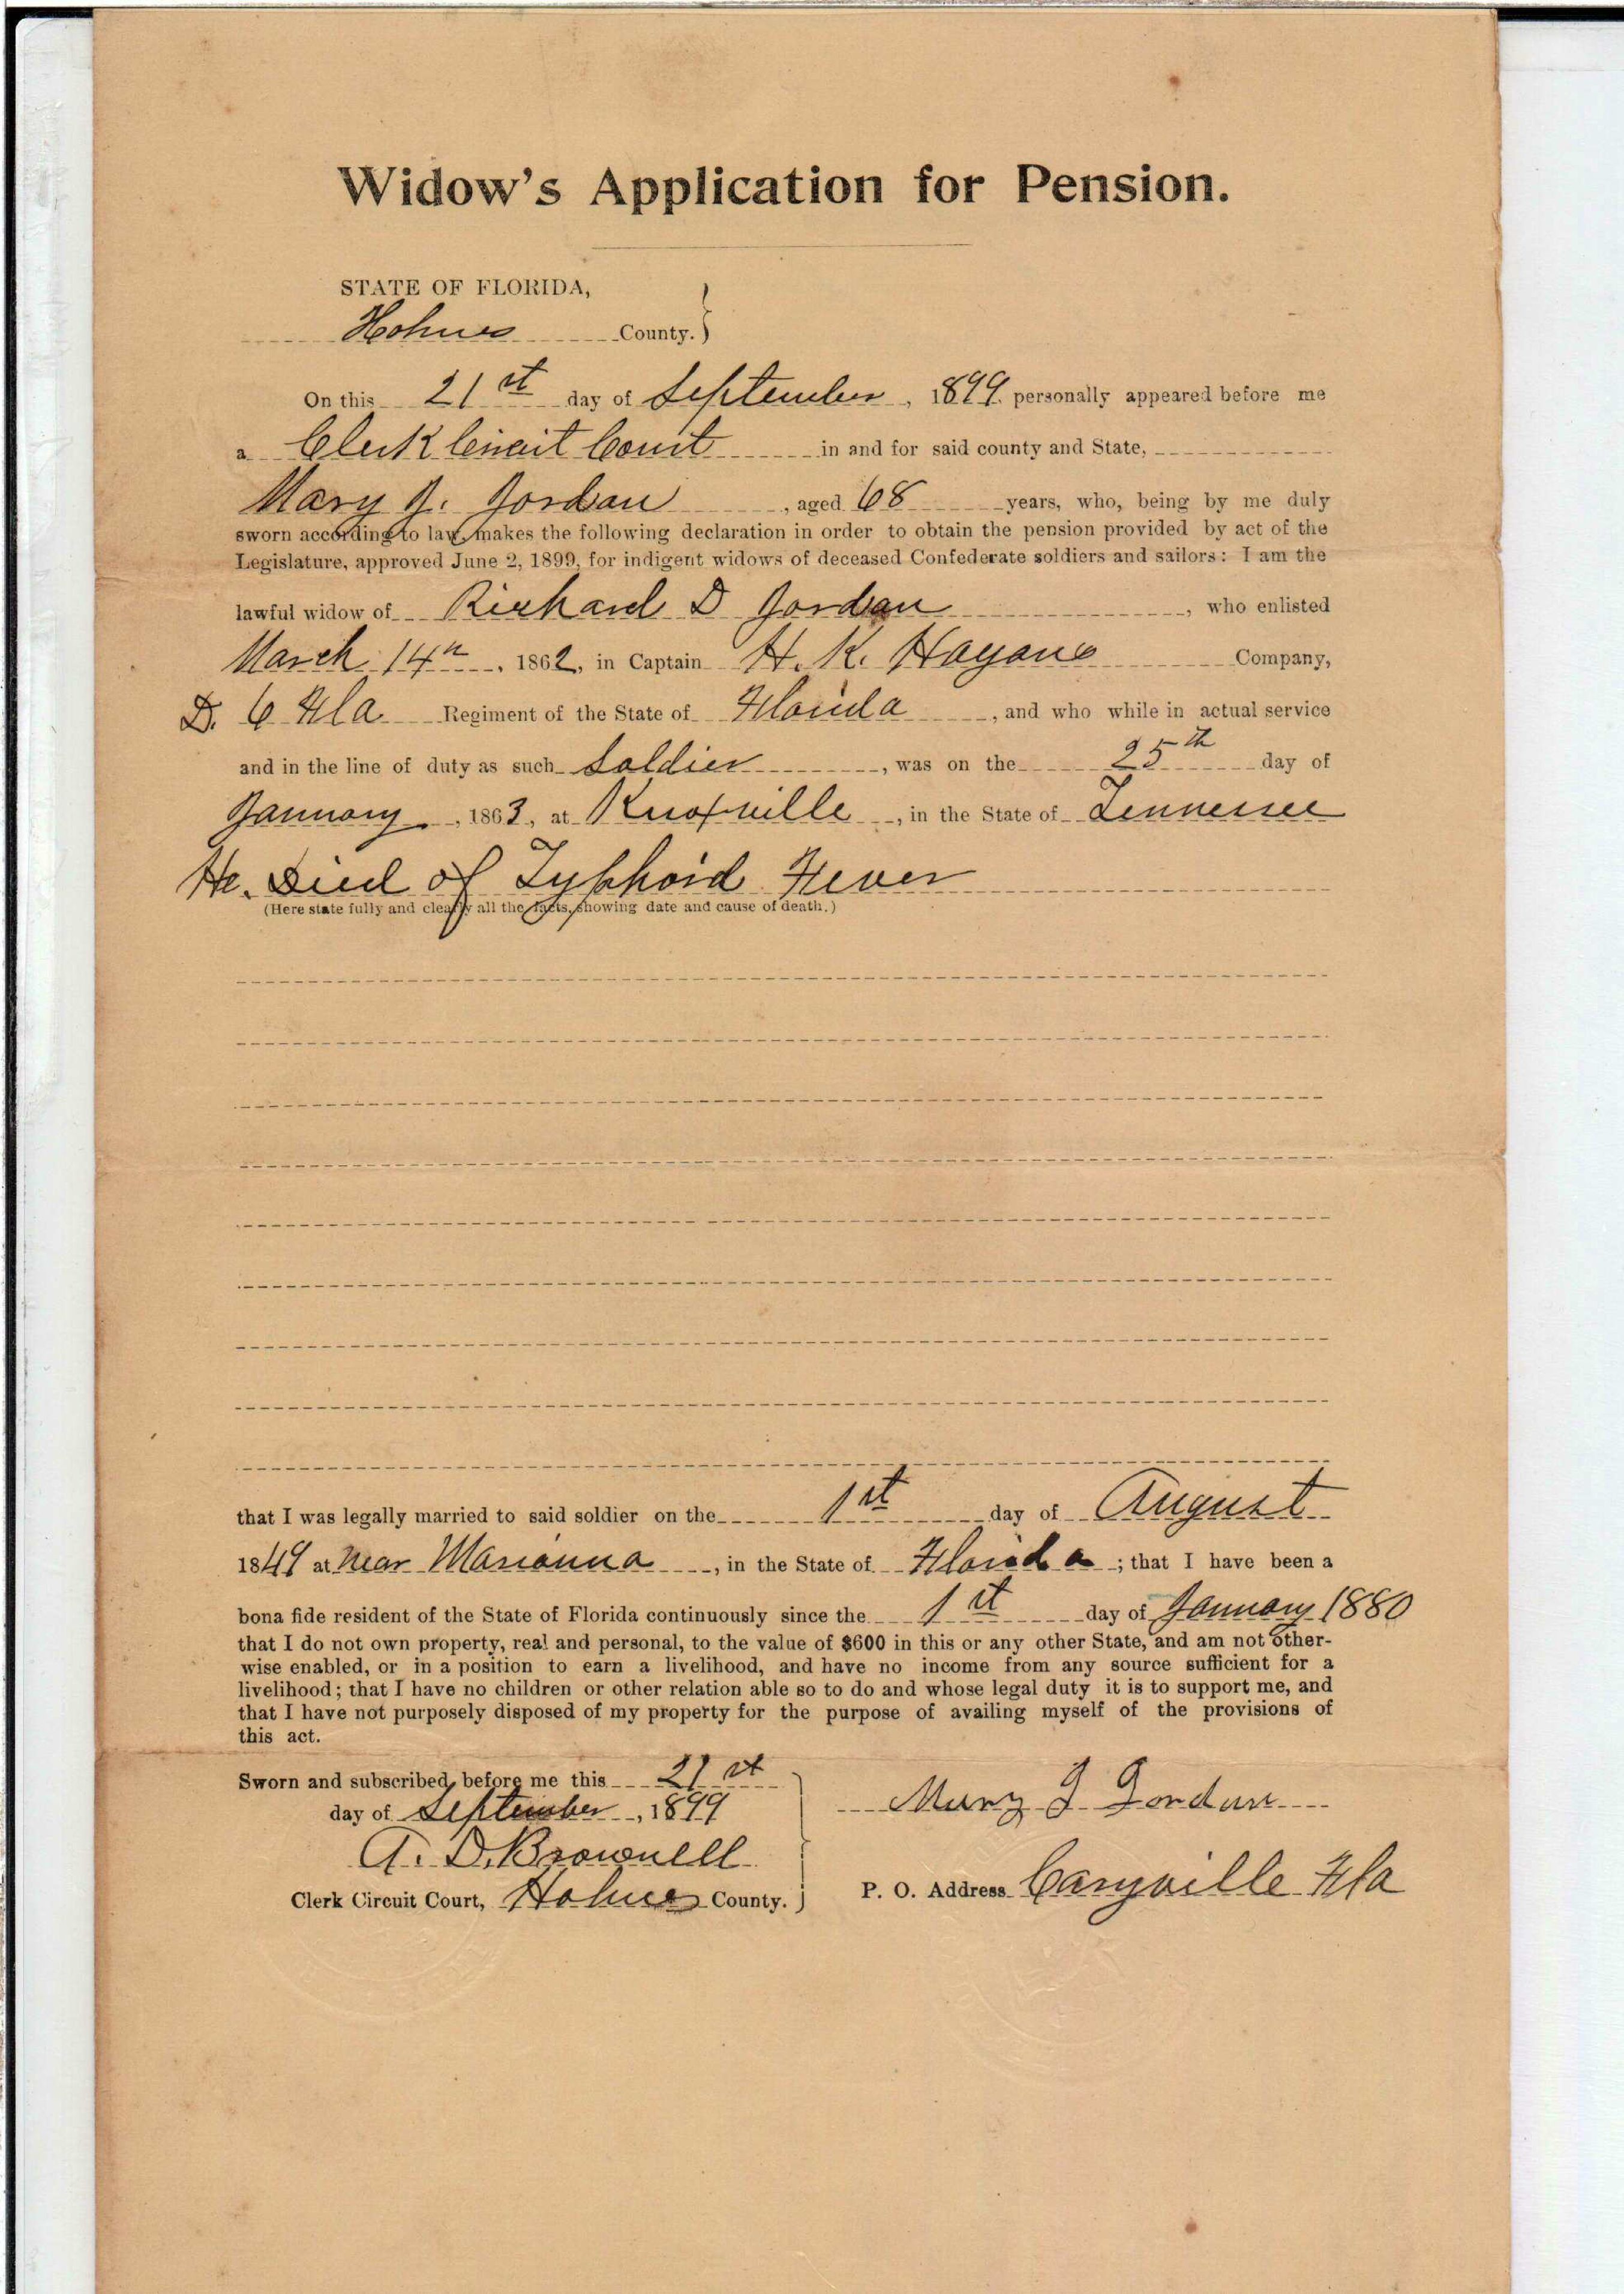 Widow's Application for Pension.
STATE OF FLORIDA,
Holmes County.
On this 21st day of September, 1899, personally appeared before me
a Clerk Circuit Court in and for said county and State,
Mary J. Jordan, aged 68 years, who, being by me duly
sworn according to law, makes the following declaration in order to obtain the pension provided by act of the
Legislature, approved June 2, 1899, for indigent widows of deceased Confederate soldiers and sailors: I am the
lawful widow of Richard D Jordan, who enlisted
March 14th, 1862, in Captain H. K. Hagans Company,
D. 6 Fla Regiment of the State of Florida, and who while in actual service
and in the line of duty as such Soldier, was on the 25th day of
January, 1863, at Knoxville, in the State of Tennessee
He Died of Typhoid Fever
(Here state fully and clearly all the facts, showing date and cause of death.)
that I was legally married to said soldier on the 1st day of August
1849 at near Marianna, in the State of Florida; that I have been a
bona fide resident of the State of Florida continuously since the 1st day of January 1880
that I do not own property, real and personal, to the value of $600 in this or any other State, and am not other-
wise enabled, or in a position to earn a livelihood, and have no income from any source sufficient for a
livelihood; that I have no children or other relation able so to do and whose legal duty it is to support me, and
that I have not purposely disposed of my property for the purpose of availing myself of the provisions of
this act.
Sworn and subscribed before me this 21st
day of September, 1899
A. D. Brownell
Clerk Circuit Court, Holmes County.
Mary J Jordan
P. O. Address Caryville Fla